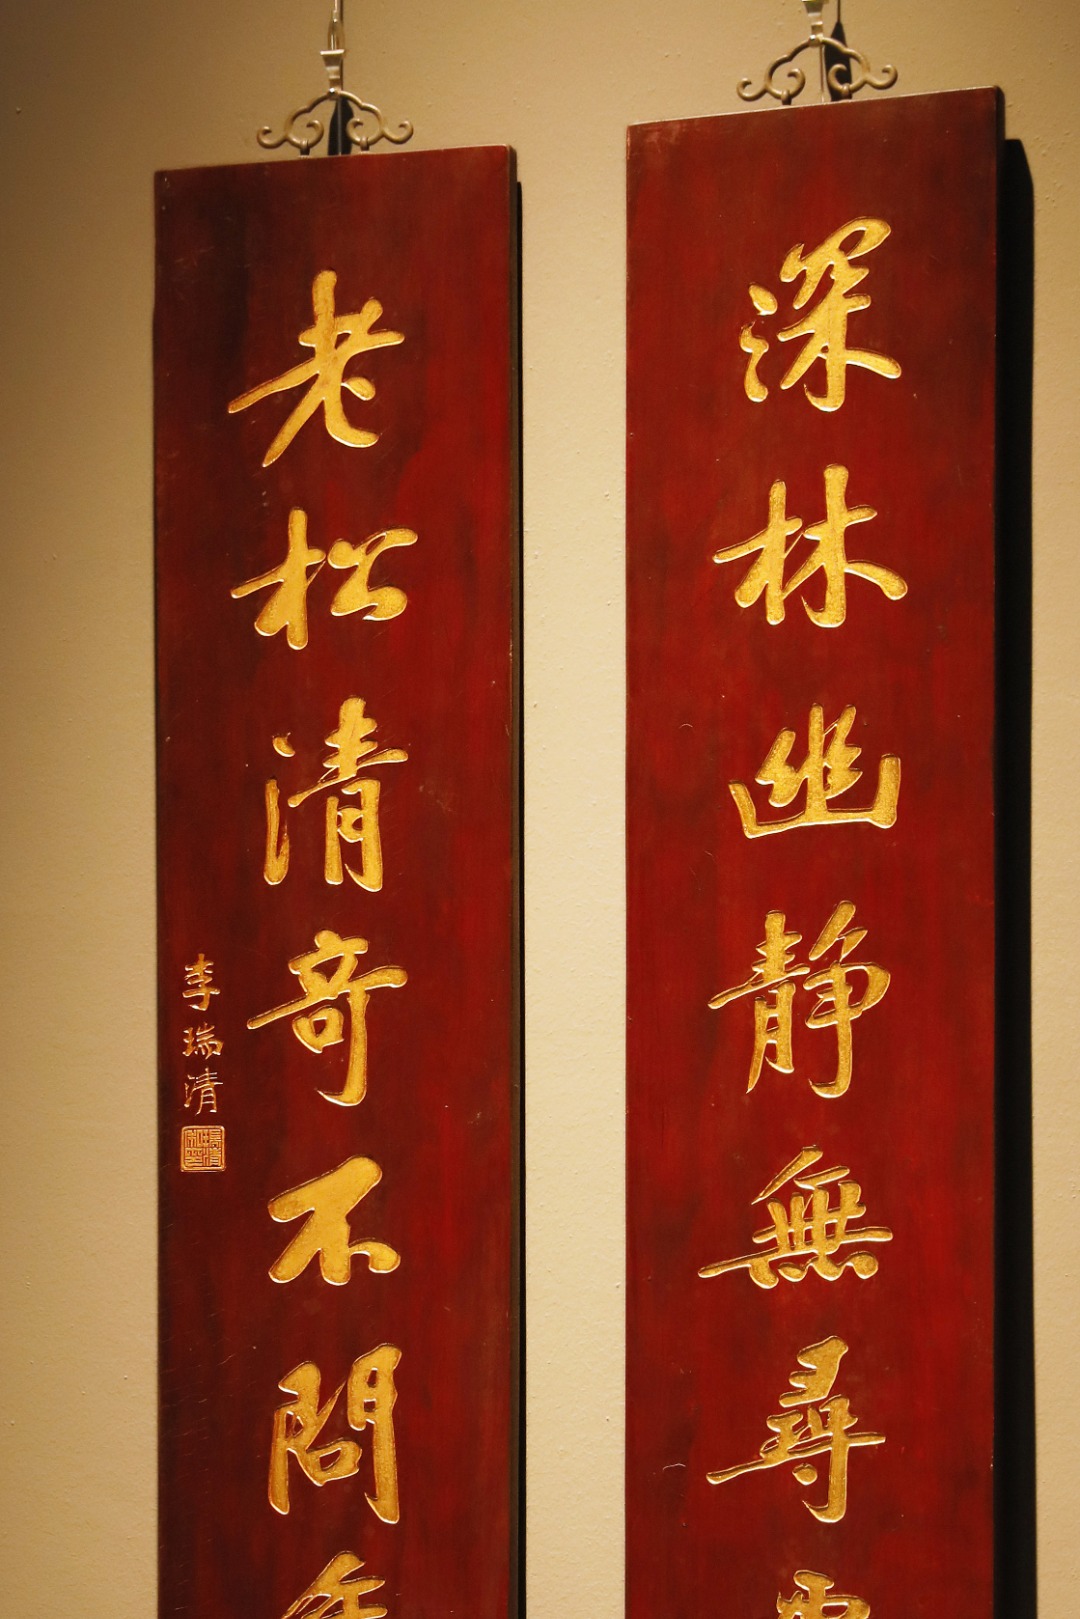 深林幽静無尋
老松清奇不問年
李瑞清